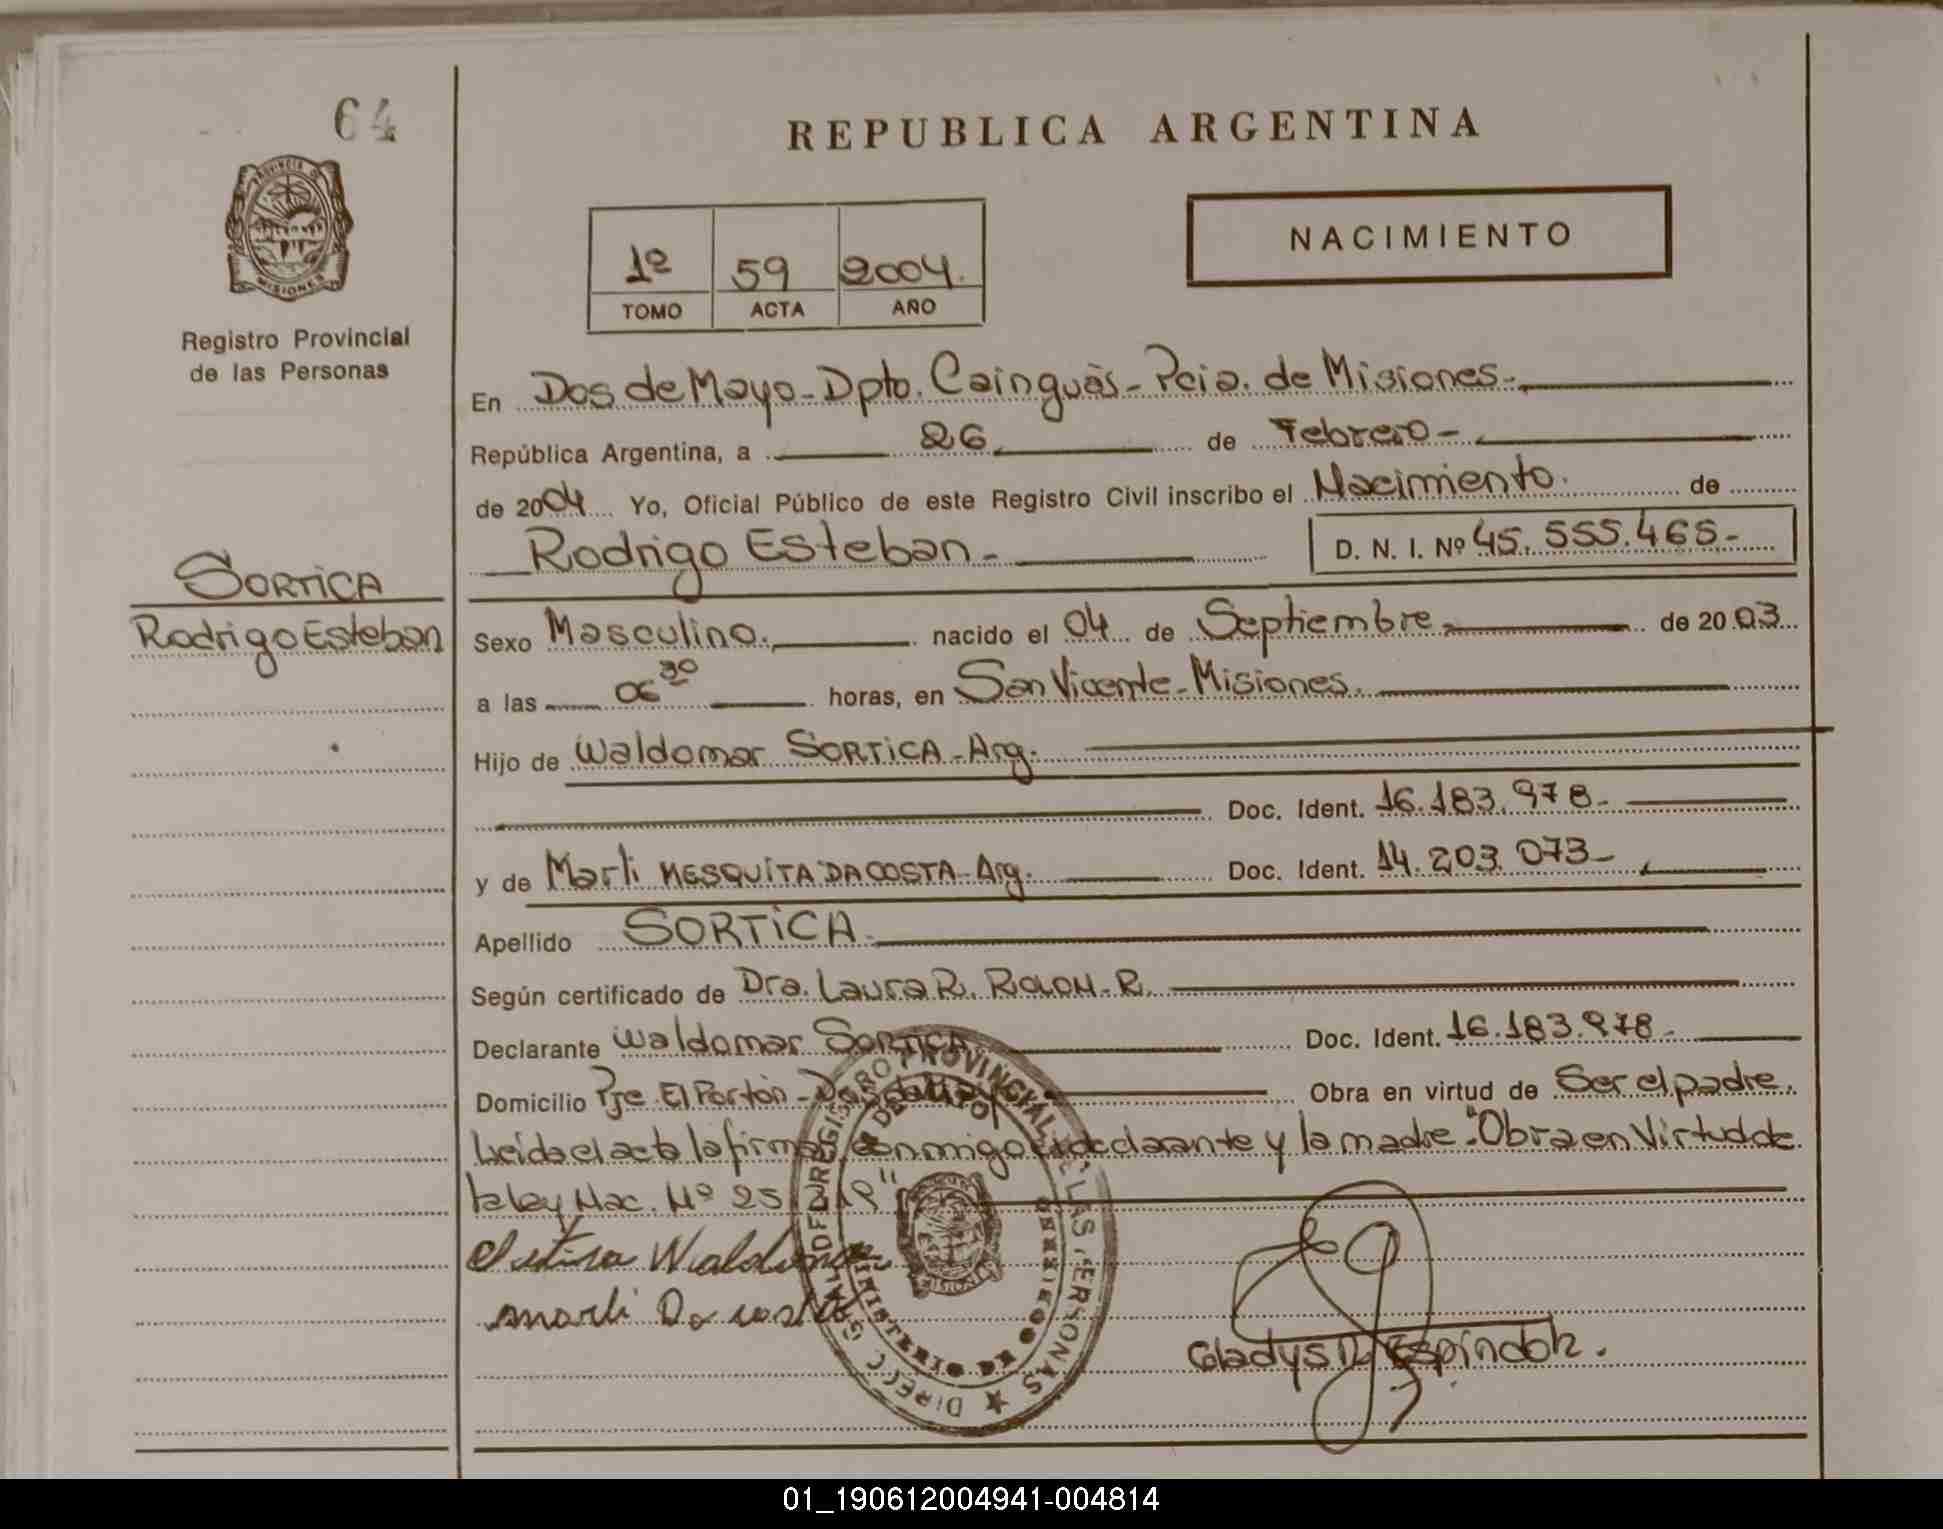 64
REPUBLICA ARGENTINA
NACIMIENTO
1º 59 2004.
TOMO ACTA AÑO
Registro Provincial
de las Personas
En Dos de Mayo - Dpto. Cainguàs - Pcia. de Misiones -
República Argentina, a 26 de Febrero -
de 2004 Yo, Oficial Público de este Registro Civil inscribo el Nacimiento. de
Rodrigo Esteban - D. N. I. Nº 45.555.465-
SORTICA
Rodrigo Esteban
Sexo Masculino. nacido el 04 de Septiembre de 2003
a las 06 30 horas, en San Vicente - Misiones.
Hijo de Waldomar SORTICA - Arg.
Doc. Ident. 16.183.978-
y de Marli MESQUITA DA COSTA - Arg. Doc. Ident. 14.203.073-
Apellido SORTICA
Según certificado de Dra. Laura R. ROLON. R.
Declarante Waldomar SORTICA Doc. Ident. 16.183.978-
Domicilio Pje. El Portón - Dos de Mayo Obra en virtud de Ser el padre.
Leida el acta la firman conmigo el declarante y la madre. "Obra en Virtud de
la ley Nac. Nº 25
Waldomar
marli Da costa
Gladys Espindola.
DIREC. GRAL. DEL REGISTRO PROVINCIAL DE LAS PERSONAS
MINISTERIO DE
MISIONES
01_190612004941-004814